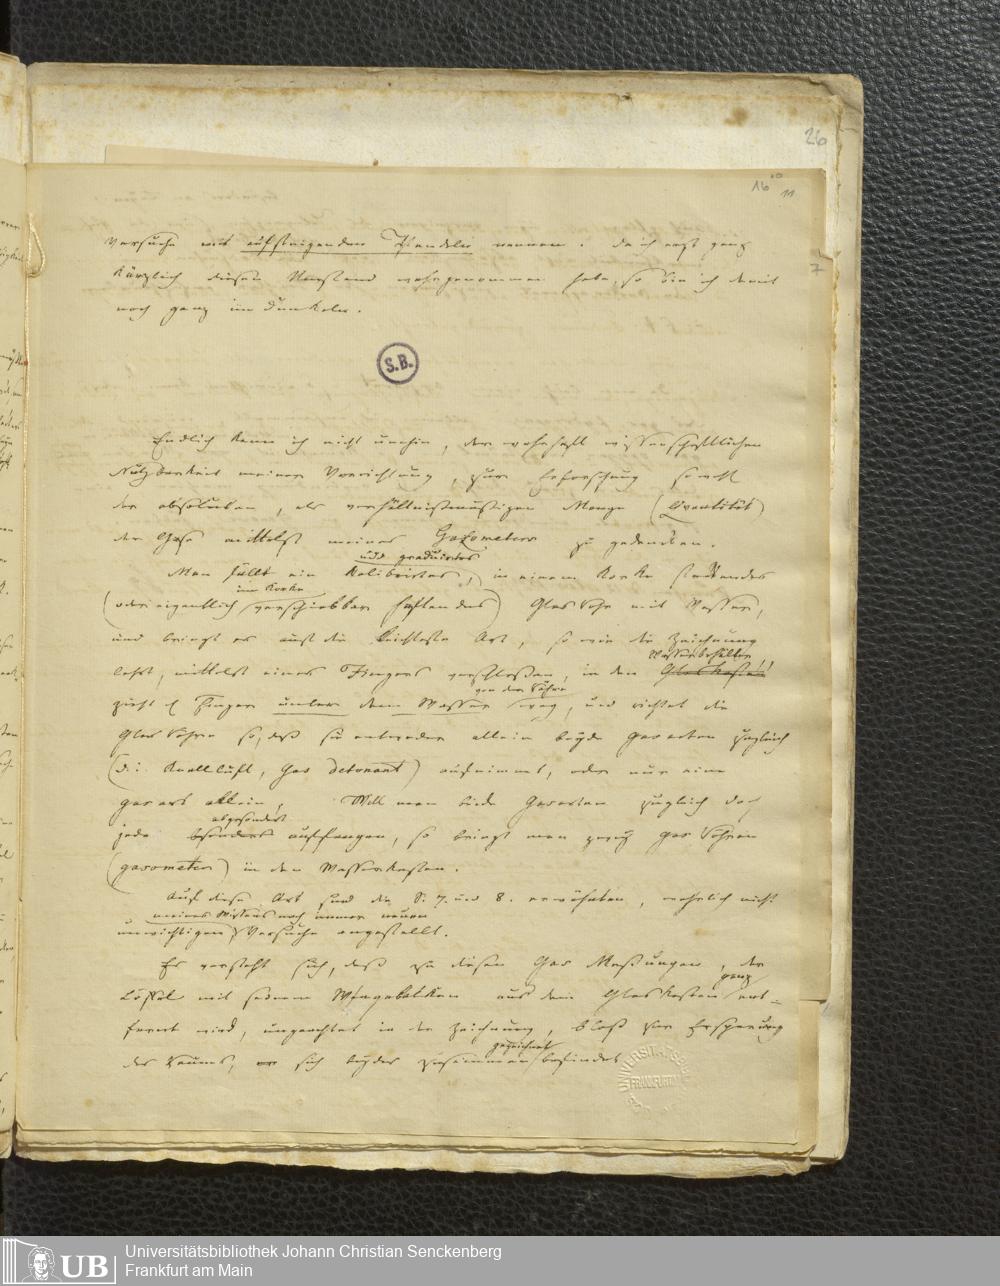 26
16 10 11
7
Versuche mit aufsteigenden Pfandeln nennen. Da ich erst ganz
kürzlich diesen Umstand wahrgenommen habe, so bin ich damit
noch ganz im Dunkeln.
S.B.
Endlich kann ich nicht umhin, der wahrhaft wissenschaftlichen
Nutzbarkeit meiner Vorrichtung, zur Erforschung sowohl
der absoluten, als verhältnißmäßigen Menge (Quantität)
der Gase mittelst meines Gazometers zu gedenken.
und graduirtes
Man füllt ein kalibrirtes, in einem Korke steckendes
im Korke
(oder eigentlich verschiebbar haftendes) Glas Rohr mit Wasser,
und bringt es auf die leichteste Art, so wie die Zeichnung
Wasserbehälter
lehrt, mittelst eines Fingers verschloßen, in den Glaskasten
von der Röhre
zieht d Finger unter dem Wasser weg, und richtet die
Glas Röhre so, daß sie entweder allein beyde Gasarten zugleich
(d. i. Knallluft, Gas detonant) aufnimmt, oder nur eine
Gasart allein, Will man beide Gasarten zugleich doch
abgesondert
jede besonders auffangen, so bringt man zwey Gas Röhren
(gasometer) in den Wasserkasten.
Auf diese Art sind die S. 7. und 8. erwähnten, wahrlich nicht
meines Wissens noch immer neuen
unwichtigen Versuche angestellt.
Es versteht sich, daß zu diesen Gas Meßungen, der
ganz
Löffel mit seinem Wagebalken aus dem Glaskasten ent-
fernt wird, ungeachtet in der Zeichnung, bloß zur Ersparung
gezeichnet
des Raums, sich beydes zusammen befindet
UB
Universitätsbibliothek Johann Christian Senckenberg
Frankfurt am Main